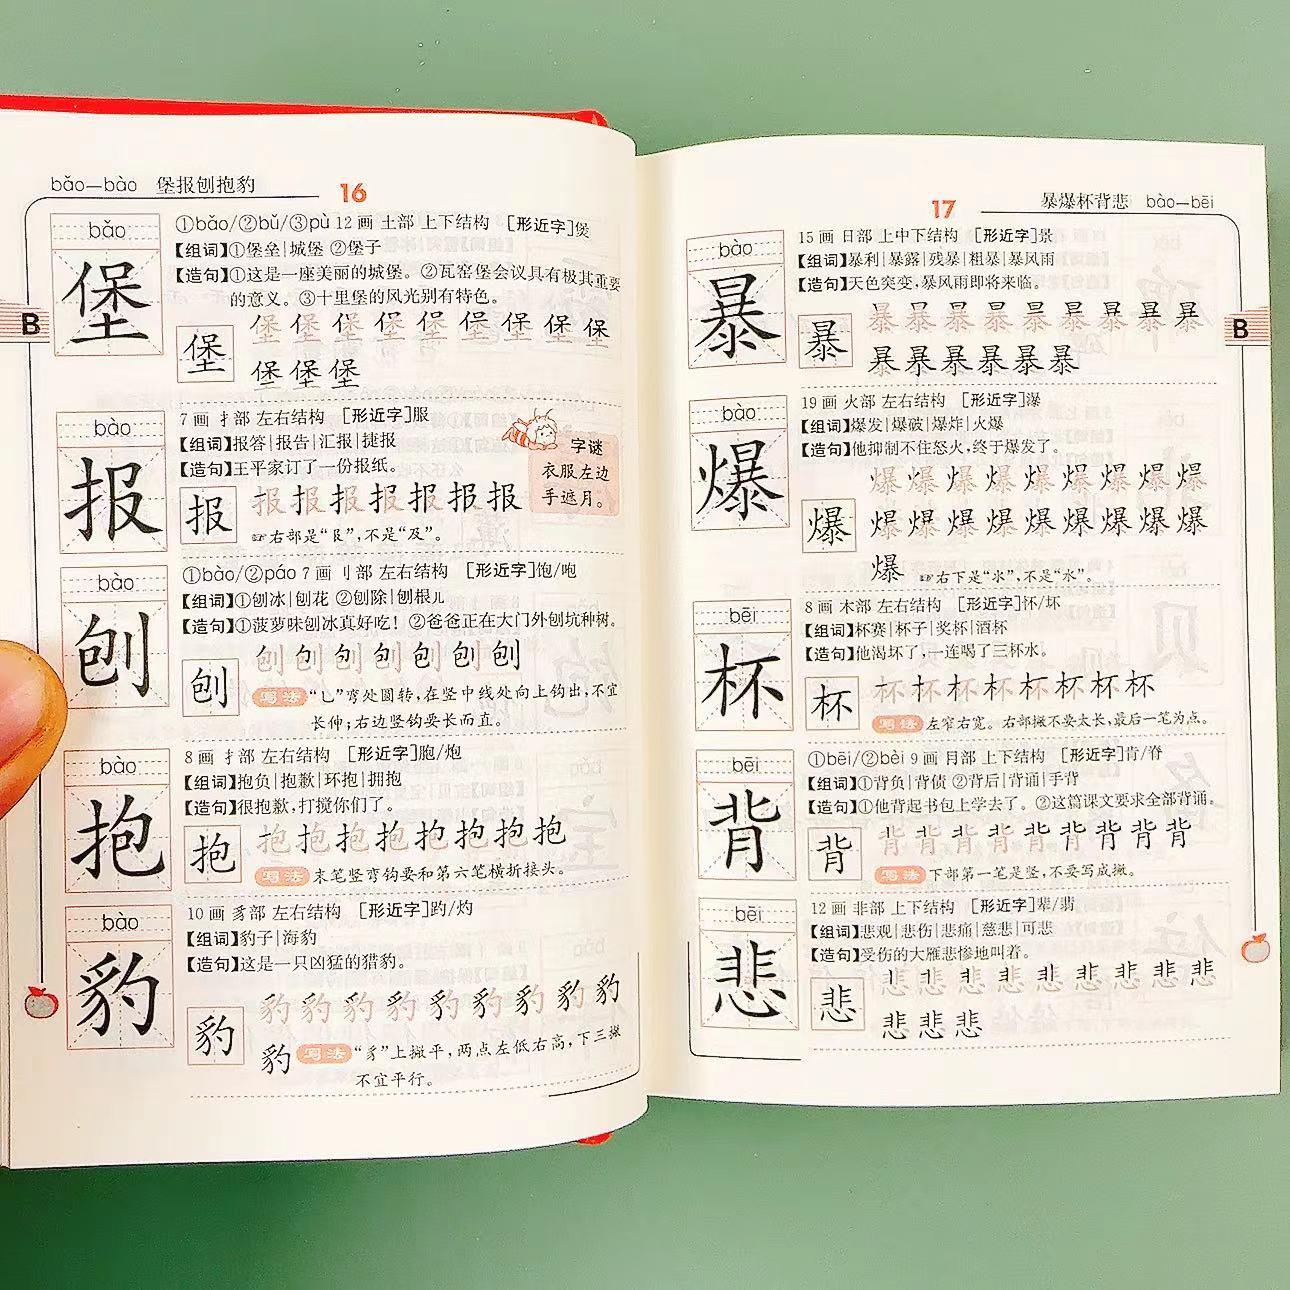 bǎo—bào 堡报刨抱豹
16
B
bǎo
堡
①bǎo/②bǔ/③pù 12画 土部 上下结构 [形近字]煲
【组词】①堡垒|城堡 ②堡子
【造句】①这是一座美丽的城堡。②瓦窑堡会议具有极其重要
的意义。③十里堡的风光别有特色。
堡 堡 堡 堡 堡 堡 堡 堡 堡 堡
堡 堡 堡
bào
报
7画 扌部 左右结构 [形近字]服
【组词】报答|报告|汇报|捷报
【造句】王平家订了一份报纸。
报 报 报 报 报 报 报 报
☞右部是“𠬝”,不是“及”。
字谜
衣服左边
手遮月。
bào
刨
①bào/②páo 7画 刂部 左右结构 [形近字]饱/咆
【组词】①刨冰|刨花 ②刨除|刨根儿
【造句】①菠萝味刨冰真好吃！②爸爸正在大门外刨坑种树。
刨 刨 刨 刨 刨 刨 刨 刨
写法 “乚”弯处圆转,在竖中线处向上钩出,不宜
长伸;右边竖钩要长而直。
bào
抱
8画 扌部 左右结构 [形近字]胞/炮
【组词】抱负|抱歉|环抱|拥抱
【造句】很抱歉,打搅你们了。
抱 抱 抱 抱 抱 抱 抱 抱 抱
写法 末笔竖弯钩要和第六笔横折接头。
bào
豹
10画 豸部 左右结构 [形近字]趵/灼
【组词】豹子|海豹
【造句】这是一只凶猛的猎豹。
豹 豹 豹 豹 豹 豹 豹 豹 豹 豹
豹 写法 “豸”上撇平,两点左低右高,下三撇
不宜平行。
17
暴爆杯背悲 bào—bēi
B
bào
暴
15画 日部 上中下结构 [形近字]景
【组词】暴利|暴露|残暴|粗暴|暴风雨
【造句】天色突变,暴风雨即将来临。
暴 暴 暴 暴 暴 暴 暴 暴 暴 暴
暴 暴 暴 暴 暴 暴
bào
爆
19画 火部 左右结构 [形近字]瀑
【组词】爆发|爆破|爆炸|火爆
【造句】他抑制不住怒火,终于爆发了。
爆 爆 爆 爆 爆 爆 爆 爆 爆
爆 爆 爆 爆 爆 爆 爆 爆 爆 爆
爆 ☞右下是“氺”,不是“水”。
bēi
杯
8画 木部 左右结构 [形近字]怀/坏
【组词】杯赛|杯子|奖杯|酒杯
【造句】他渴坏了,一连喝了三杯水。
杯 杯 杯 杯 杯 杯 杯 杯 杯
写法 左窄右宽。右部撇不要太长,最后一笔为点。
bēi
背
①bēi/②bèi 9画 ⺼部 上下结构 [形近字]肯/脊
【组词】①背负|背债 ②背后|背诵|手背
【造句】①他背起书包上学去了。②这篇课文要求全部背诵。
背 背 背 背 背 背 背 背 背 背
写法 下部第一笔是竖,不要写成撇。
bēi
悲
12画 非部 上下结构 [形近字]辈/翡
【组词】悲观|悲伤|悲痛|慈悲|可悲
【造句】受伤的大雁悲惨地叫着。
悲 悲 悲 悲 悲 悲 悲 悲 悲 悲
悲 悲 悲